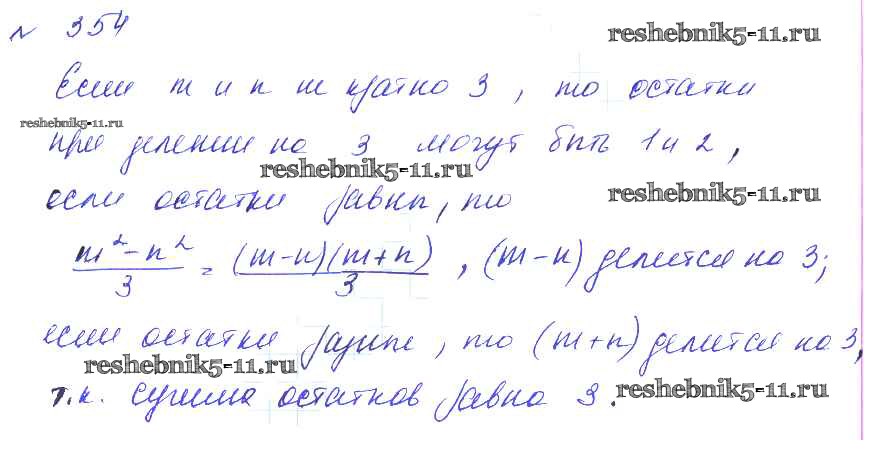 № 354
reshebnik5-11.ru
Если m и n не кратно 3, то остатки
reshebnik5-11.ru
при делении на 3 могут быть 1 и 2,
reshebnik5-11.ru
если остатки равны, то
reshebnik5-11.ru
(m² - n²)/3 = (m-n)(m+n)/3, (m-n) делится на 3;
если остатки разные, то (m+n) делится на 3,
reshebnik5-11.ru
т.к. сумма остатков равна 3.
reshebnik5-11.ru